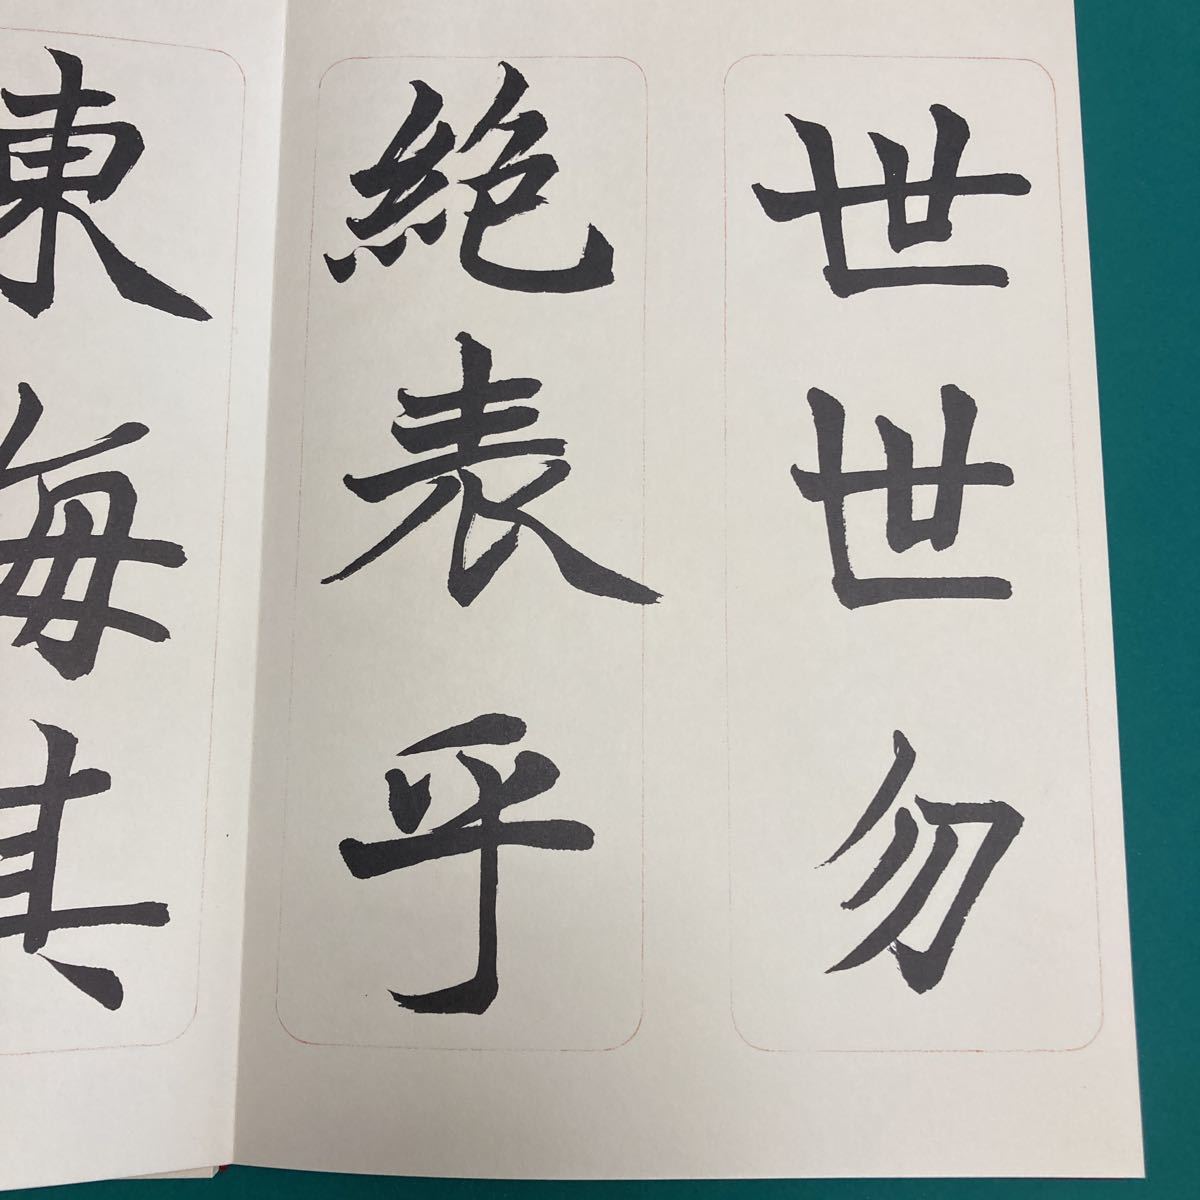 世世勿
絶表乎
東海其